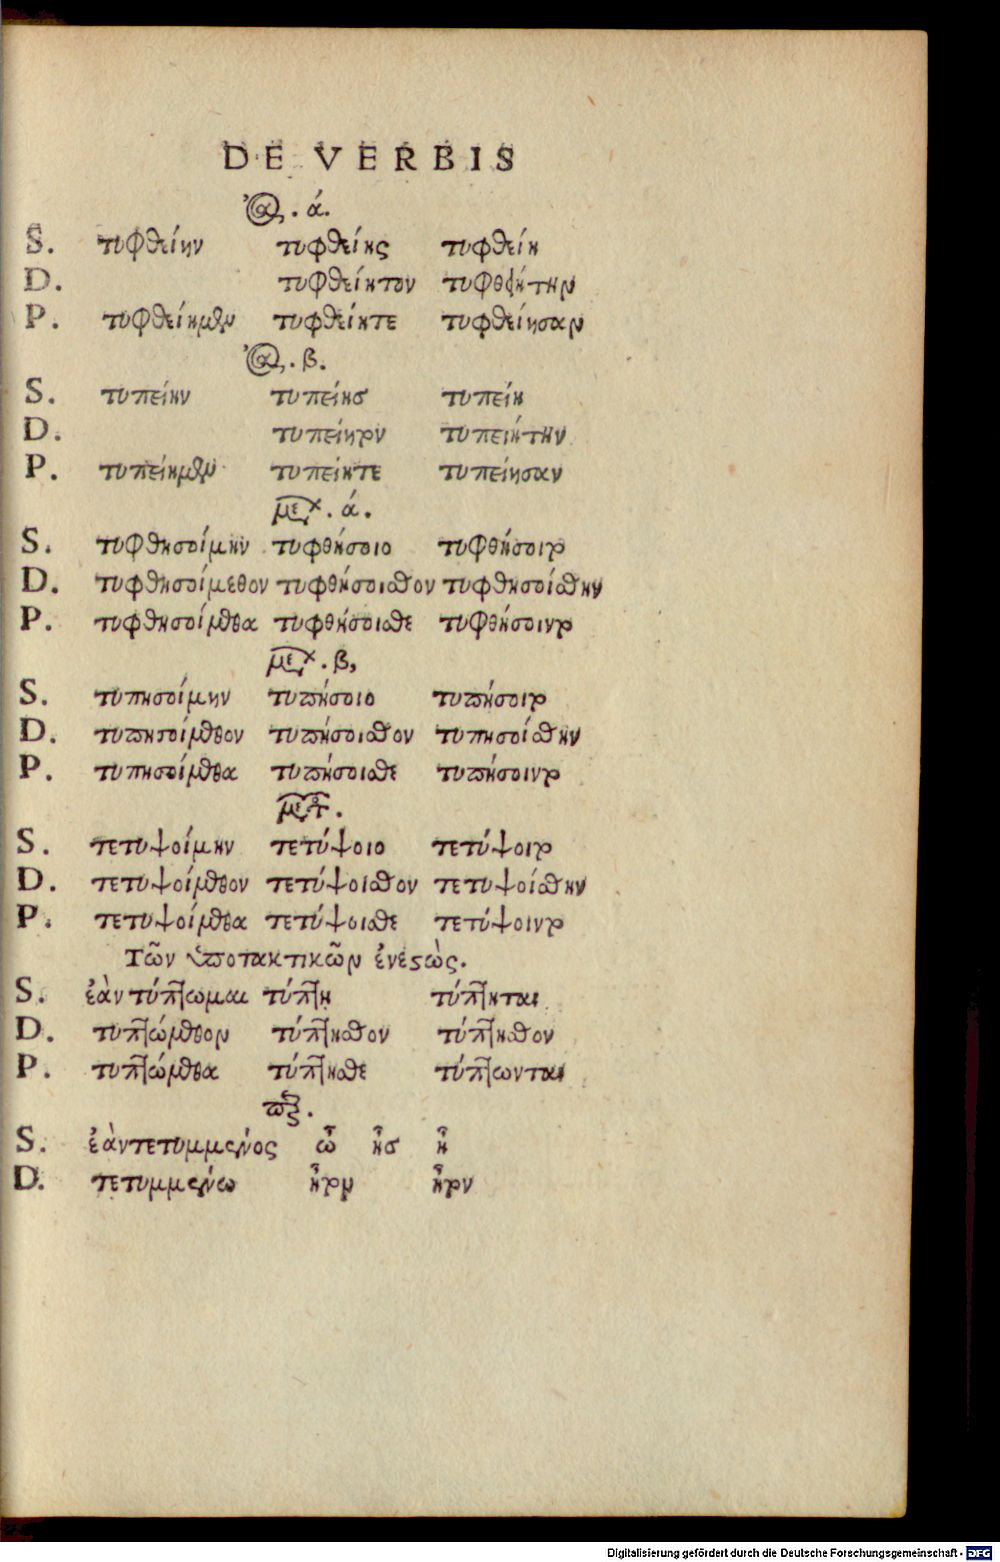 DE VERBIS
ἀό. ά.
S. τυφθείην τυφθείης τυφθείη
D. τυφθείητον τυφθειήτην
P. τυφθείημεν τυφθείητε τυφθείησαν
ἀό. β.
S. τυπείην τυπείης τυπείη
D. τυπείητον τυπειήτην
P. τυπείημεν τυπείητε τυπείησαν
μελ. ά.
S. τυφθησοίμην τυφθήσοιο τυφθήσοιτο
D. τυφθησοίμεθον τυφθήσοισθον τυφθησοίσθην
P. τυφθησοίμεθα τυφθήσοισθε τυφθήσοιντο
μελ. β,
S. τυπησοίμην τυπήσοιο τυπήσοιτο
D. τυπησοίμεθον τυπήσοισθον τυπησοίσθην
P. τυπησοίμεθα τυπήσοισθε τυπήσοιντο
S. τετυψοίμην τετύψοιο τετύψοιτο
D. τετυψοίμεθον τετύψοισθον τετυψοίσθην
P. τετυψοίμεθα τετύψοισθε τετύψοιντο
Τῶν ὑποτακτικῶν ἐνεστὼς.
S. ἐὰν τύπτωμαι τύπτῃ τύπτηται
D. τυπτώμεθον τύπτησθον τύπτησθον
P. τυπτώμεθα τύπτησθε τύπτωνται
S. ἐὰν τετυμμένος ὦ ᾖς ᾖ
D. τετυμμένω ἦτον ἦτον
Digitalisierung gefördert durch die Deutsche Forschungsgemeinschaft - DFG